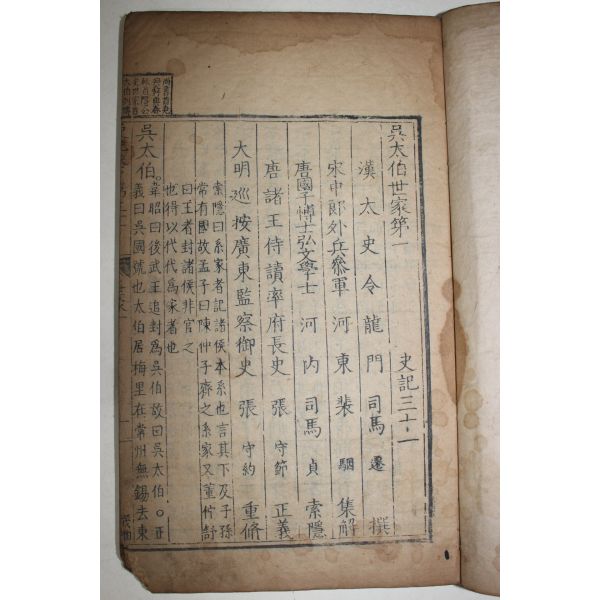 吳太伯世家第一 史記三十一
漢太史令龍門司馬遷撰
宋中郎外兵叅軍河東裴駰集解
唐國子博士弘文學士河內司馬貞索隱
唐諸王侍讀率府長史張守節正義
大明巡按廣東監察御史張守約重脩
索隱曰系家者記諸侯本系也言其下及子孫
常有國故孟子曰陳仲子齊之系家又董仲舒
曰王者封諸侯非官之
也得以代代爲家者也
吳太伯
韋昭曰後武王追封爲吳伯故曰吳太伯○正
義曰吳國號也太伯居梅里在常州無錫去東